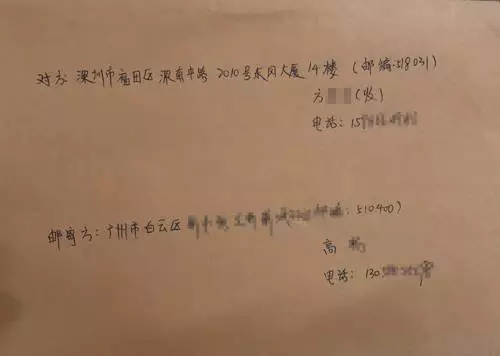 对方:深圳市福田区深南中路2010号东风大厦14楼(邮编:518031)
方 (收)
电话:15
邮寄方:广州市白云区 :510400)
高
电话:130